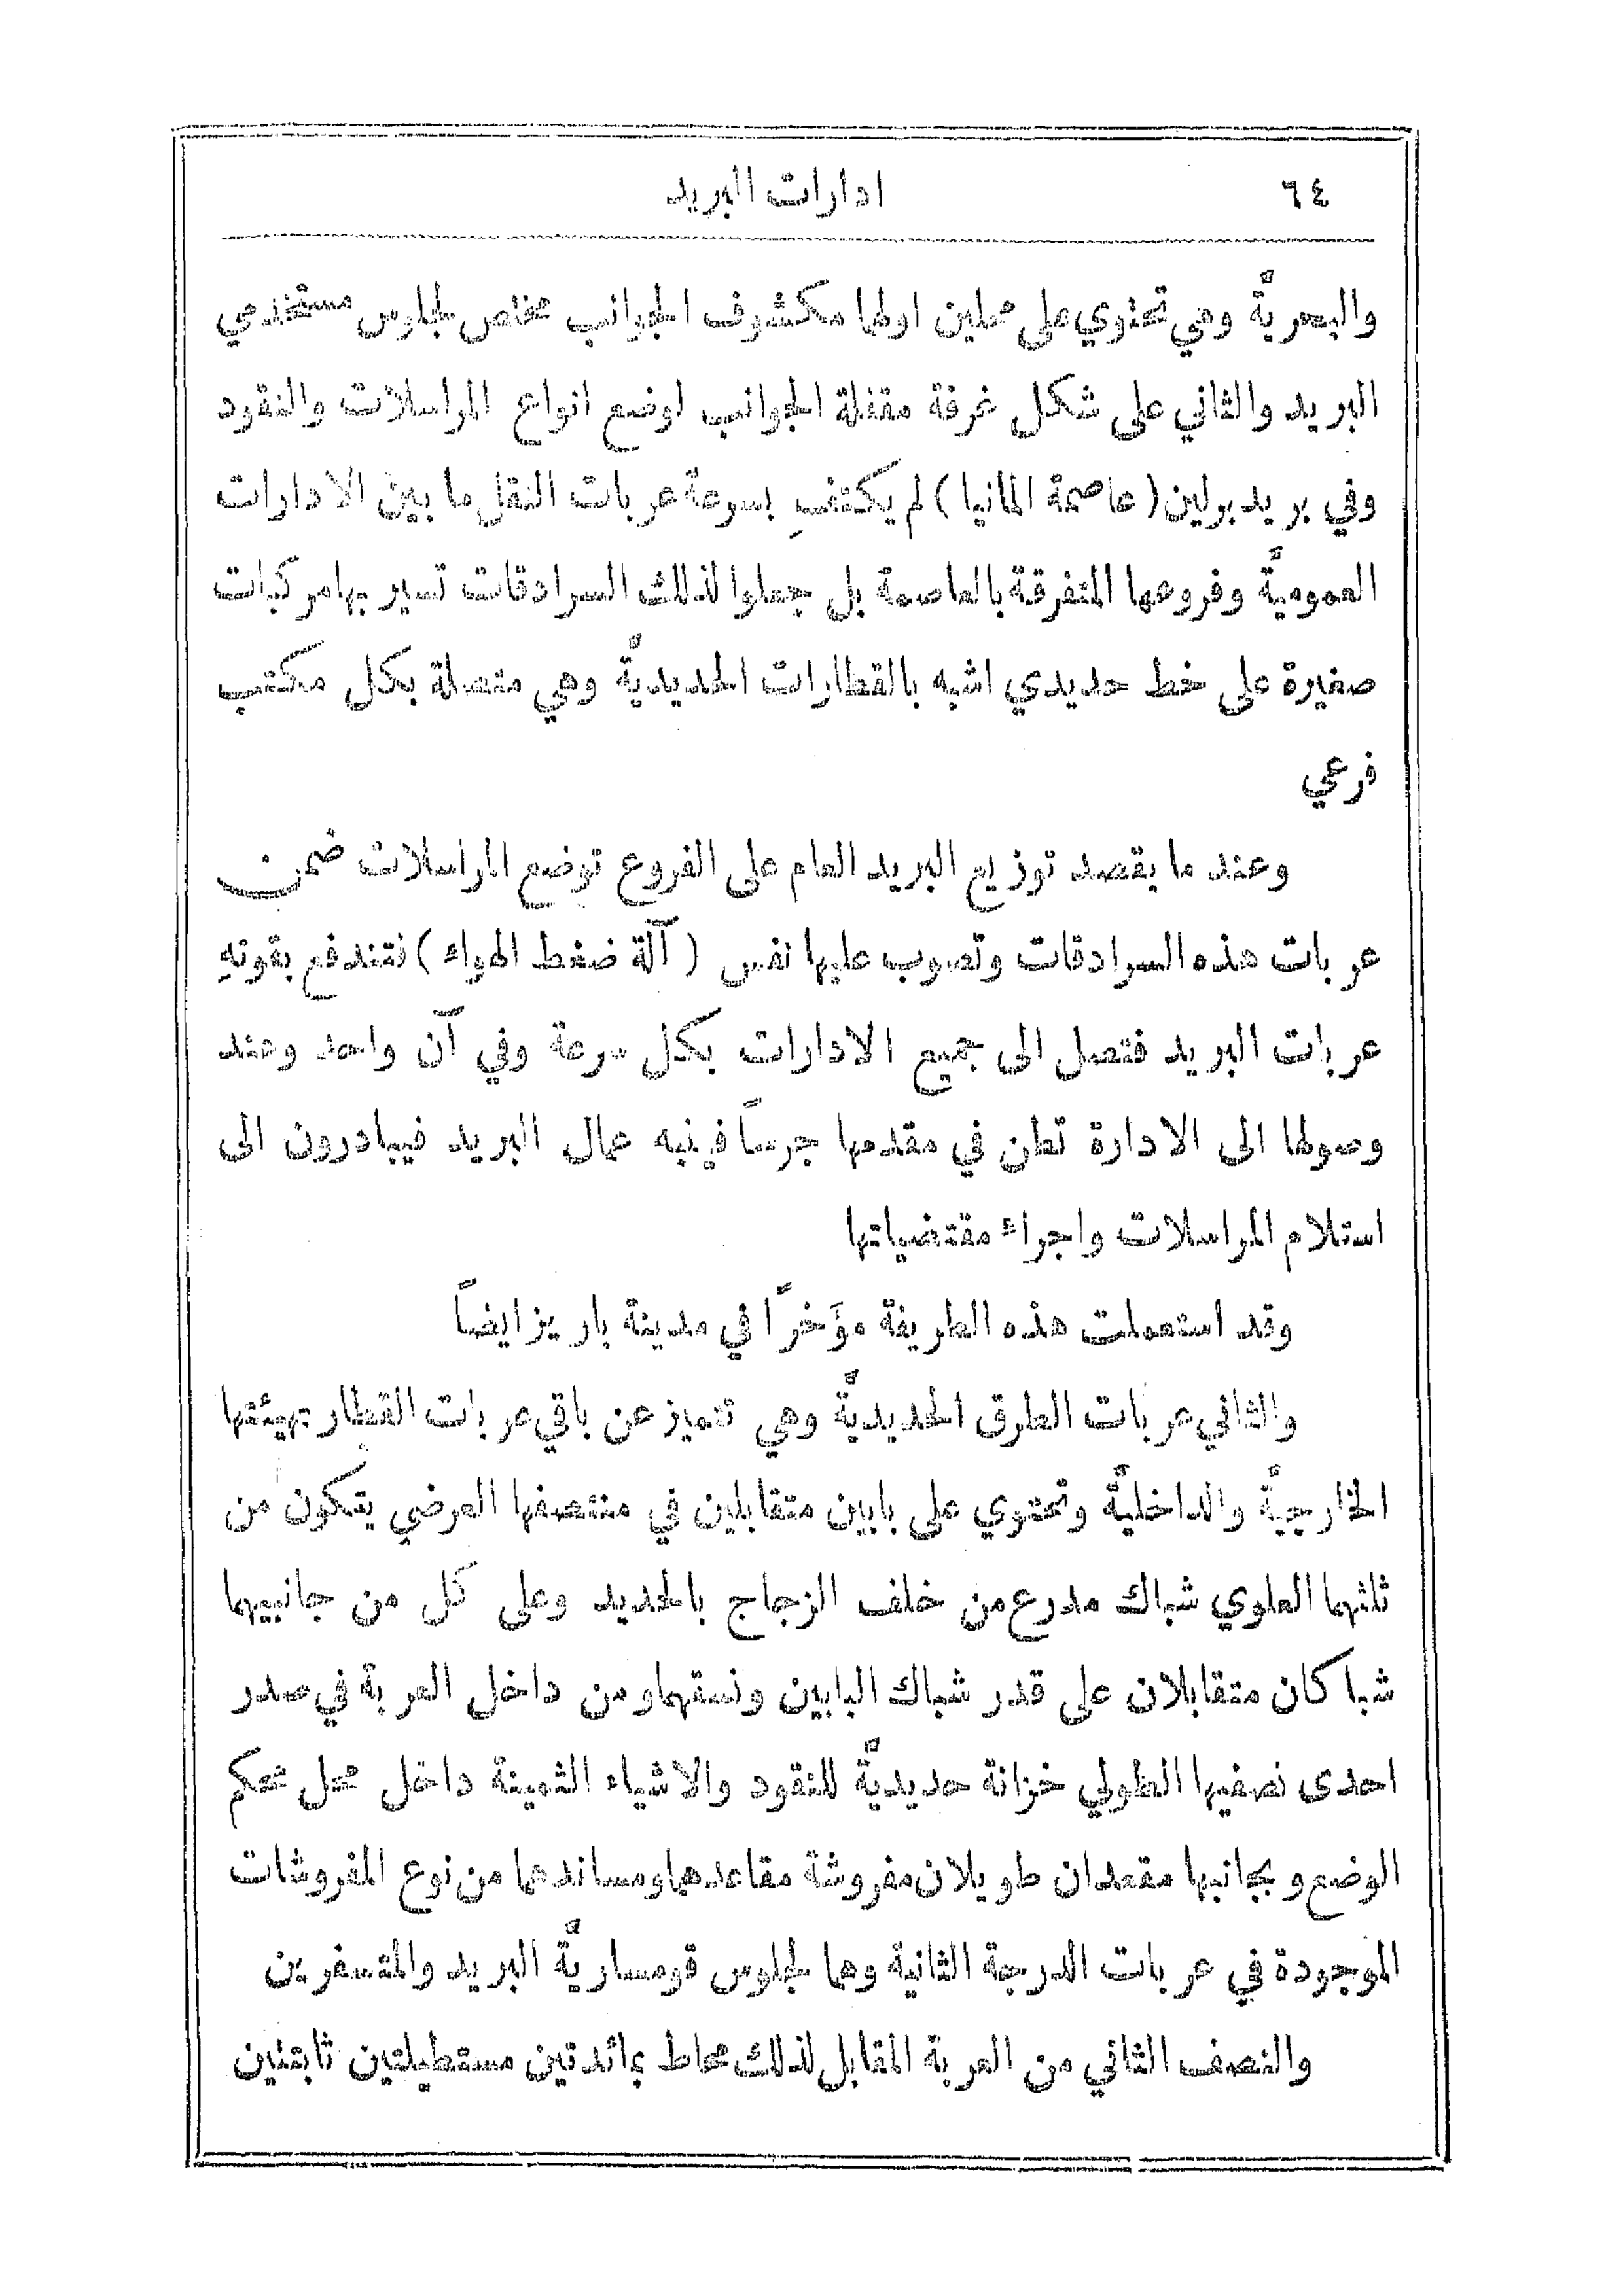 ٦٤
ادارات البريد
والبحريَّة وهي تحتوي على محلين اولها مكشوف الجوانب مختص لجلوس مستخدمي
البريد والثاني على شكل غرفة مقفلة الجوانب لوضع انواع المراسلات والنقود
وفي بريد برلين (عاصمة المانيا) لم يكتفِ بسرعة عربات النقل ما بين الادارات
العموميَّة وفروعها المتفرقة بالعاصمة بل جعلوا لذلك السرادقات تسير بها مركبات
صغيرة على خط حديدي اشبه بالقطارات الحديديَّة وهي متصلة بكل مكتب
فرعي
وعند ما يقصد توزيع البريد العام على الفروع توضع المراسلات ضمن
عربات هذه السرادقات وتصوب عليها نفس (آلة ضغط الهواء) فتندفع بقوتهِ
عربات البريد فتصل الى جميع الادارات بكل سرعة وفي آن واحد وعند
وصولها الى الادارة تطن في مقدمها جرساً فينبه عمال البريد فيبادرون الى
استلام المراسلات واجراء مقتضياتها
وقد استعملت هذه الطريقة مؤَخرًا في مدينة باريز ايضاً
والثاني عربات الطرق الحديديَّة وهي تتميز عن باقي عربات القطار بهيئتها
الخارجيَّة والداخليَّة وتحتوي على بابين متقابلين في منتصفها العرضي يتكون من
ثلثهما العلوي شباك مدرع من خلف الزجاج بالحديد وعلى كل من جانبيها
شباكان متقابلان على قدر شباك البابين ونسقهما ومن داخل العربة في صدر
احدى نصفيها الطولي خزانة حديديَّة للنقود والاشياء الثمينة داخل محل محكم
الوضع وبجانبها مقعدان طويلان مفروشة مقاعدهما ومساندهما من نوع المفروشات
الموجودة في عربات الدرجة الثانية وهما لجلوس قومساريَّة البريد والمتسفرين
والنصف الثاني من العربة المقابل لذلك محاط بمائدتين مستطيلتين ثابتتين